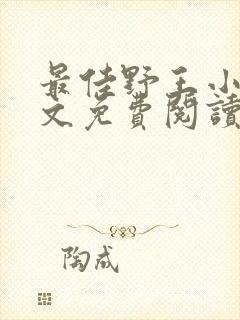 最佳野王小
文免費閱讀
陶成